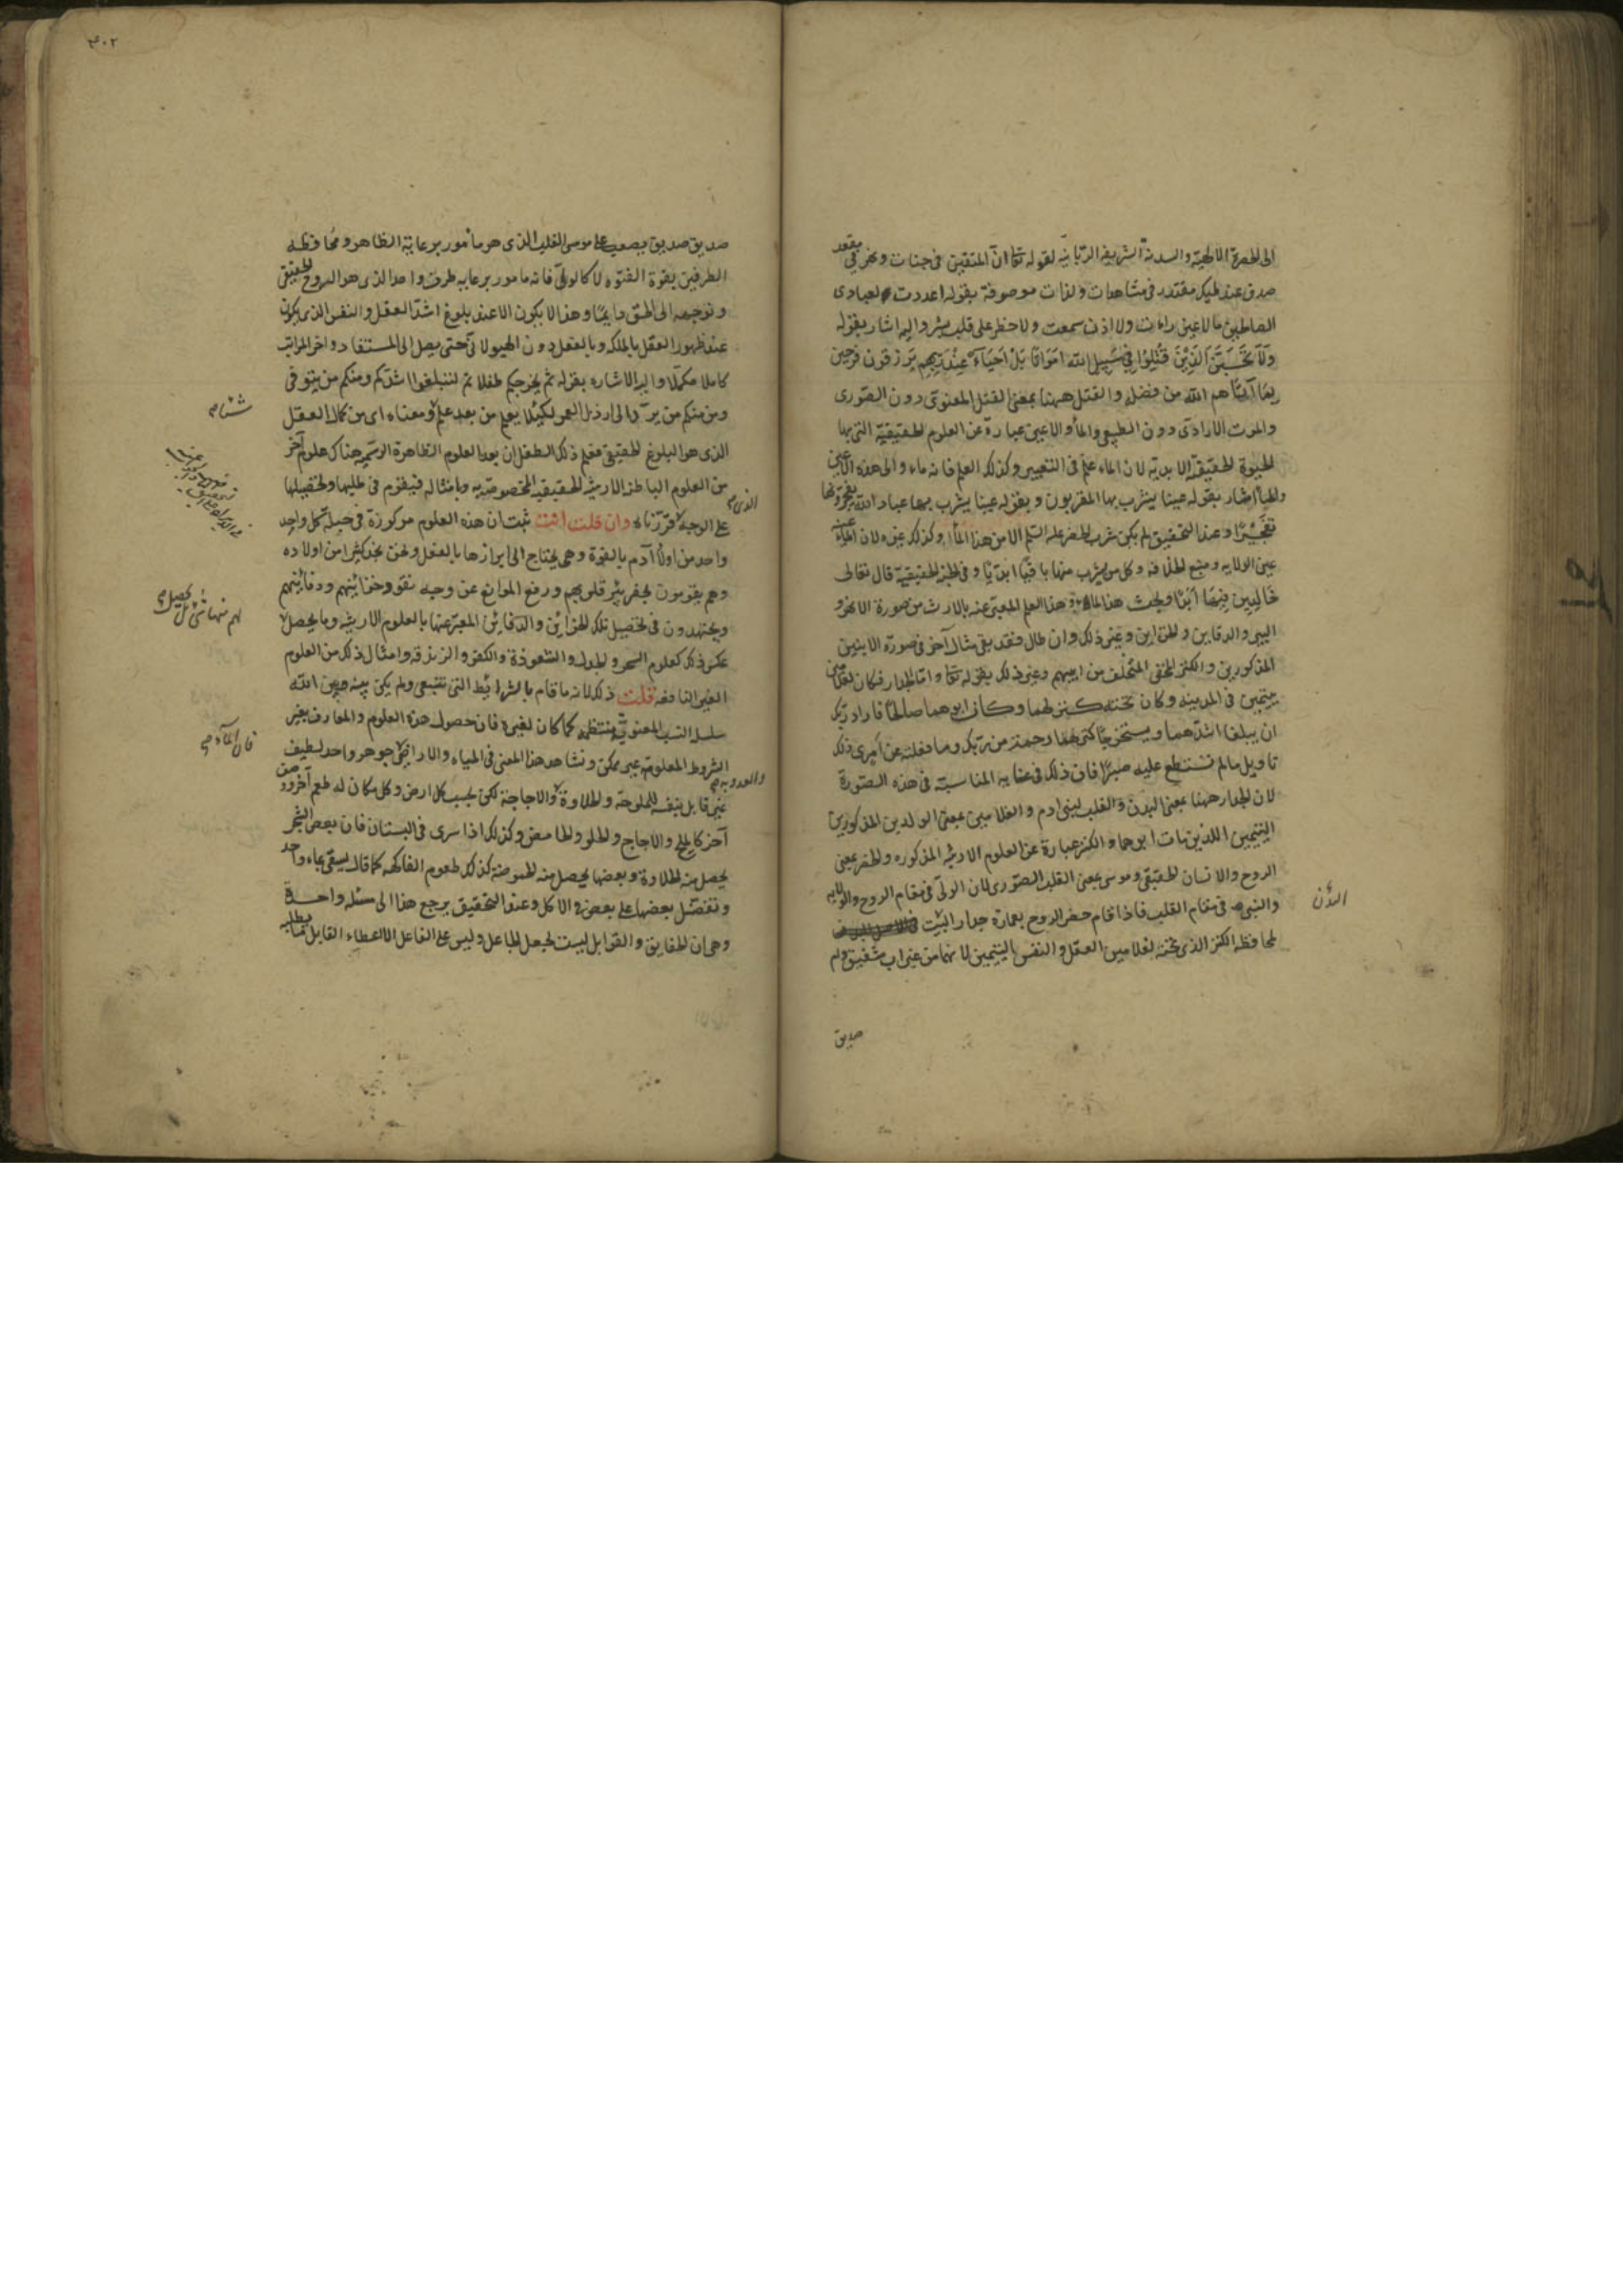 الى الحضرة الالهية والسدنة الشريفة الربانية لقوله تعا ان المتقين فى جنات ونهر فى مقعد
صدق عند مليك مقتدر فى مشاهدات ولذات موصوفة بقوله اعددت لعبادى
الصالحين ما لا عين رأت ولا اذن سمعت ولا خطر على قلب بشر واليه اشار بقوله
وَلَا تَحْسَبَنَّ الَّذِيْنَ قُتِلُوْا فِيْ سَبِيلِ اللَّه اَمْوَاتًا بَلْ اَحْيَاءٌ عِنْدَ رَبِّهِم يُرزقون فرحين
بِمَا آتَاهم اللّه من فضله والقتل ههنا بمعنى القتل المعنوى دون الصورى
والموت الارادى دون الطبيعى والماء والاعين عبارة عن العلوم الحقيقية التى بها
الحيوة الحقيقة الابدية لان الماء علم فى التعبير وكذلك العلم فانه ماء والى هذه الاعين
والماء اشار بقوله عينا يشرب بها المقربون وبقوله عينا يشرب بها عباد الله يفجرونها
تفجيرًا وعند التحقيق لم يكن شرب الخضر عليه السلم الا من هذا الماء وكذلك غيره لان
عين الولايه ومنبع الخلافه وكل من يشرب منها باقيا ابديا وفى الحقيقية قال تعالى
خَالِدِين فِيْهَا اَبَدًا وبحث هذا الماء هذا العلم المعبر عنه بالارث من صورة الانهر و
البير والدفاين والخزاين وغير ذلك وان طال فقد بقى مثال آخر فى صورة الابنين
المذكورين والكنز المخفى المتخلف من ابيهم وغير ذلك بقوله تعا واما الجدار فكان لغلامين
يتيمين فى المدينه وكان تحته كنز لهما وكان ابوهما صالحًا فاراد ربك
ان يبلغا اشدهما ويستخرجا كنزهما رحمة من ربك وما فعلته عن امرى ذلك
تاويل مالم تستطع عليه صبرًا فان ذلك فى غايه المناسبة فى هذه الصّورة
لان الجدار ههنا بمعنى البدن والقلب لبنى ادم والغلامين بمعنى الولدين المذكورين
اليتيمين اللذين مات ابوهما والكنز عبارة عن العلوم الارثيه المذكوره والخضر بمعنى
الروح والانسان الحقيقى وموسى بمعنى القلب الصّورى لان الولى فى مقام الروح والولايه
والنبى فى مقام القلب فاذا قام خضر الروح بعمارة جدار البيت
لمحافظه الكنز الذى تحته لغلامين العقل والنفس اليتيمين لانهما من غير اب شفيق ولم
البدن
صديق
٣٠٢
صديق صديق يصعب على موسى القلب الذى هو مأمور برعاية الظاهر ومحافظه
الطرفين بقوة الفتوه لا كالولى فانه مامور برعايه طرف واحد الذى هو الروح الحقيقى
وتوجهه الى الحق دايمًا وهذا لا يكون الا عند بلوغ اشد العقل والنفس الذى يكون
عند ظهور العقل بالملكه وبالفعل دون الهيولانى حتى يصل الى المستفاد واخر المراتب
كاملا مكملا واليه الاشاره بقوله ثم يخرجكم طفلا ثم لتبلغوا اشدكم ومنكم من يتوفى
ومن منكم من يردّ الى ارذل العمر لكيلا يعلم من بعد علم ومعناه اى من كمال العقل
الذى هو البلوغ الحقيقى فعلم ذلك الطفل ان بعد العلوم الظاهرة الرسميه هناك علوم آخر
من العلوم الباطن الارثيه الحقيقيه المخصوصة به وبامثاله فيقوم فى طلبها وتحصيلها
على الوجه قررناه وان قلت انت ثبت ان هذه العلوم مركوزة فى جبلة كل واحد
واحد من اولاد آدم بالقوة وهى يحتاج الى ابرازها بالفعل ونحن نجد كثيرا من اولاده
وهم يقومون بحفر بئر قلوبهم ورفع الموانع عن وجه وخزائنهم ودفائنهم
ويجتهدون فى تحصيل تلك الخزائن والدفائن المعبر عنها بالعلوم الارثيه وما يحصل
عكس ذلك كعلوم السحر والجدل والشعوذة والكفر والزندقه وامثال ذلك من العلوم
الغير النافعه قلت ذلك لانه ما قام بالشرائط التى تنبغى ولم يكن بينه وبين الله
سلسلة النسب المعنوية منتظمه كما كان لغيره فان حصول هذه العلوم والمعارف بغير
الشروط المعلومة غير ممكن ونشاهد هذا المعنى فى المياه والاراضى جوهر واحد لطيف
غير قابل بنفسه للملوحة والحلاوة والاجاجة لكن بحسب كل ارض وكل مكان له طعم آخر
آخر كالملح والاجاج والحلو والحامض وكذلك اذا سرى فى البستان فان بعض الشجر
يحصل منه الحلاوة وبعضها يحصل منه الحموضة كذلك طعوم الفاكهه كما قال يسقى بماء واحد
ونفضّل بعضها على بعض فى الاكل وعند التحقيق يرجع هذا الى مسئله واحدة
وهى ان الحقايق والقوابل ليست بجعل الجاعل وليس على الفاعل الا اعطاء القابل
شئنا صح
الذى صح
لهم منها شئ بل يحصل صح
فان الماء صح
والعذوبه صح